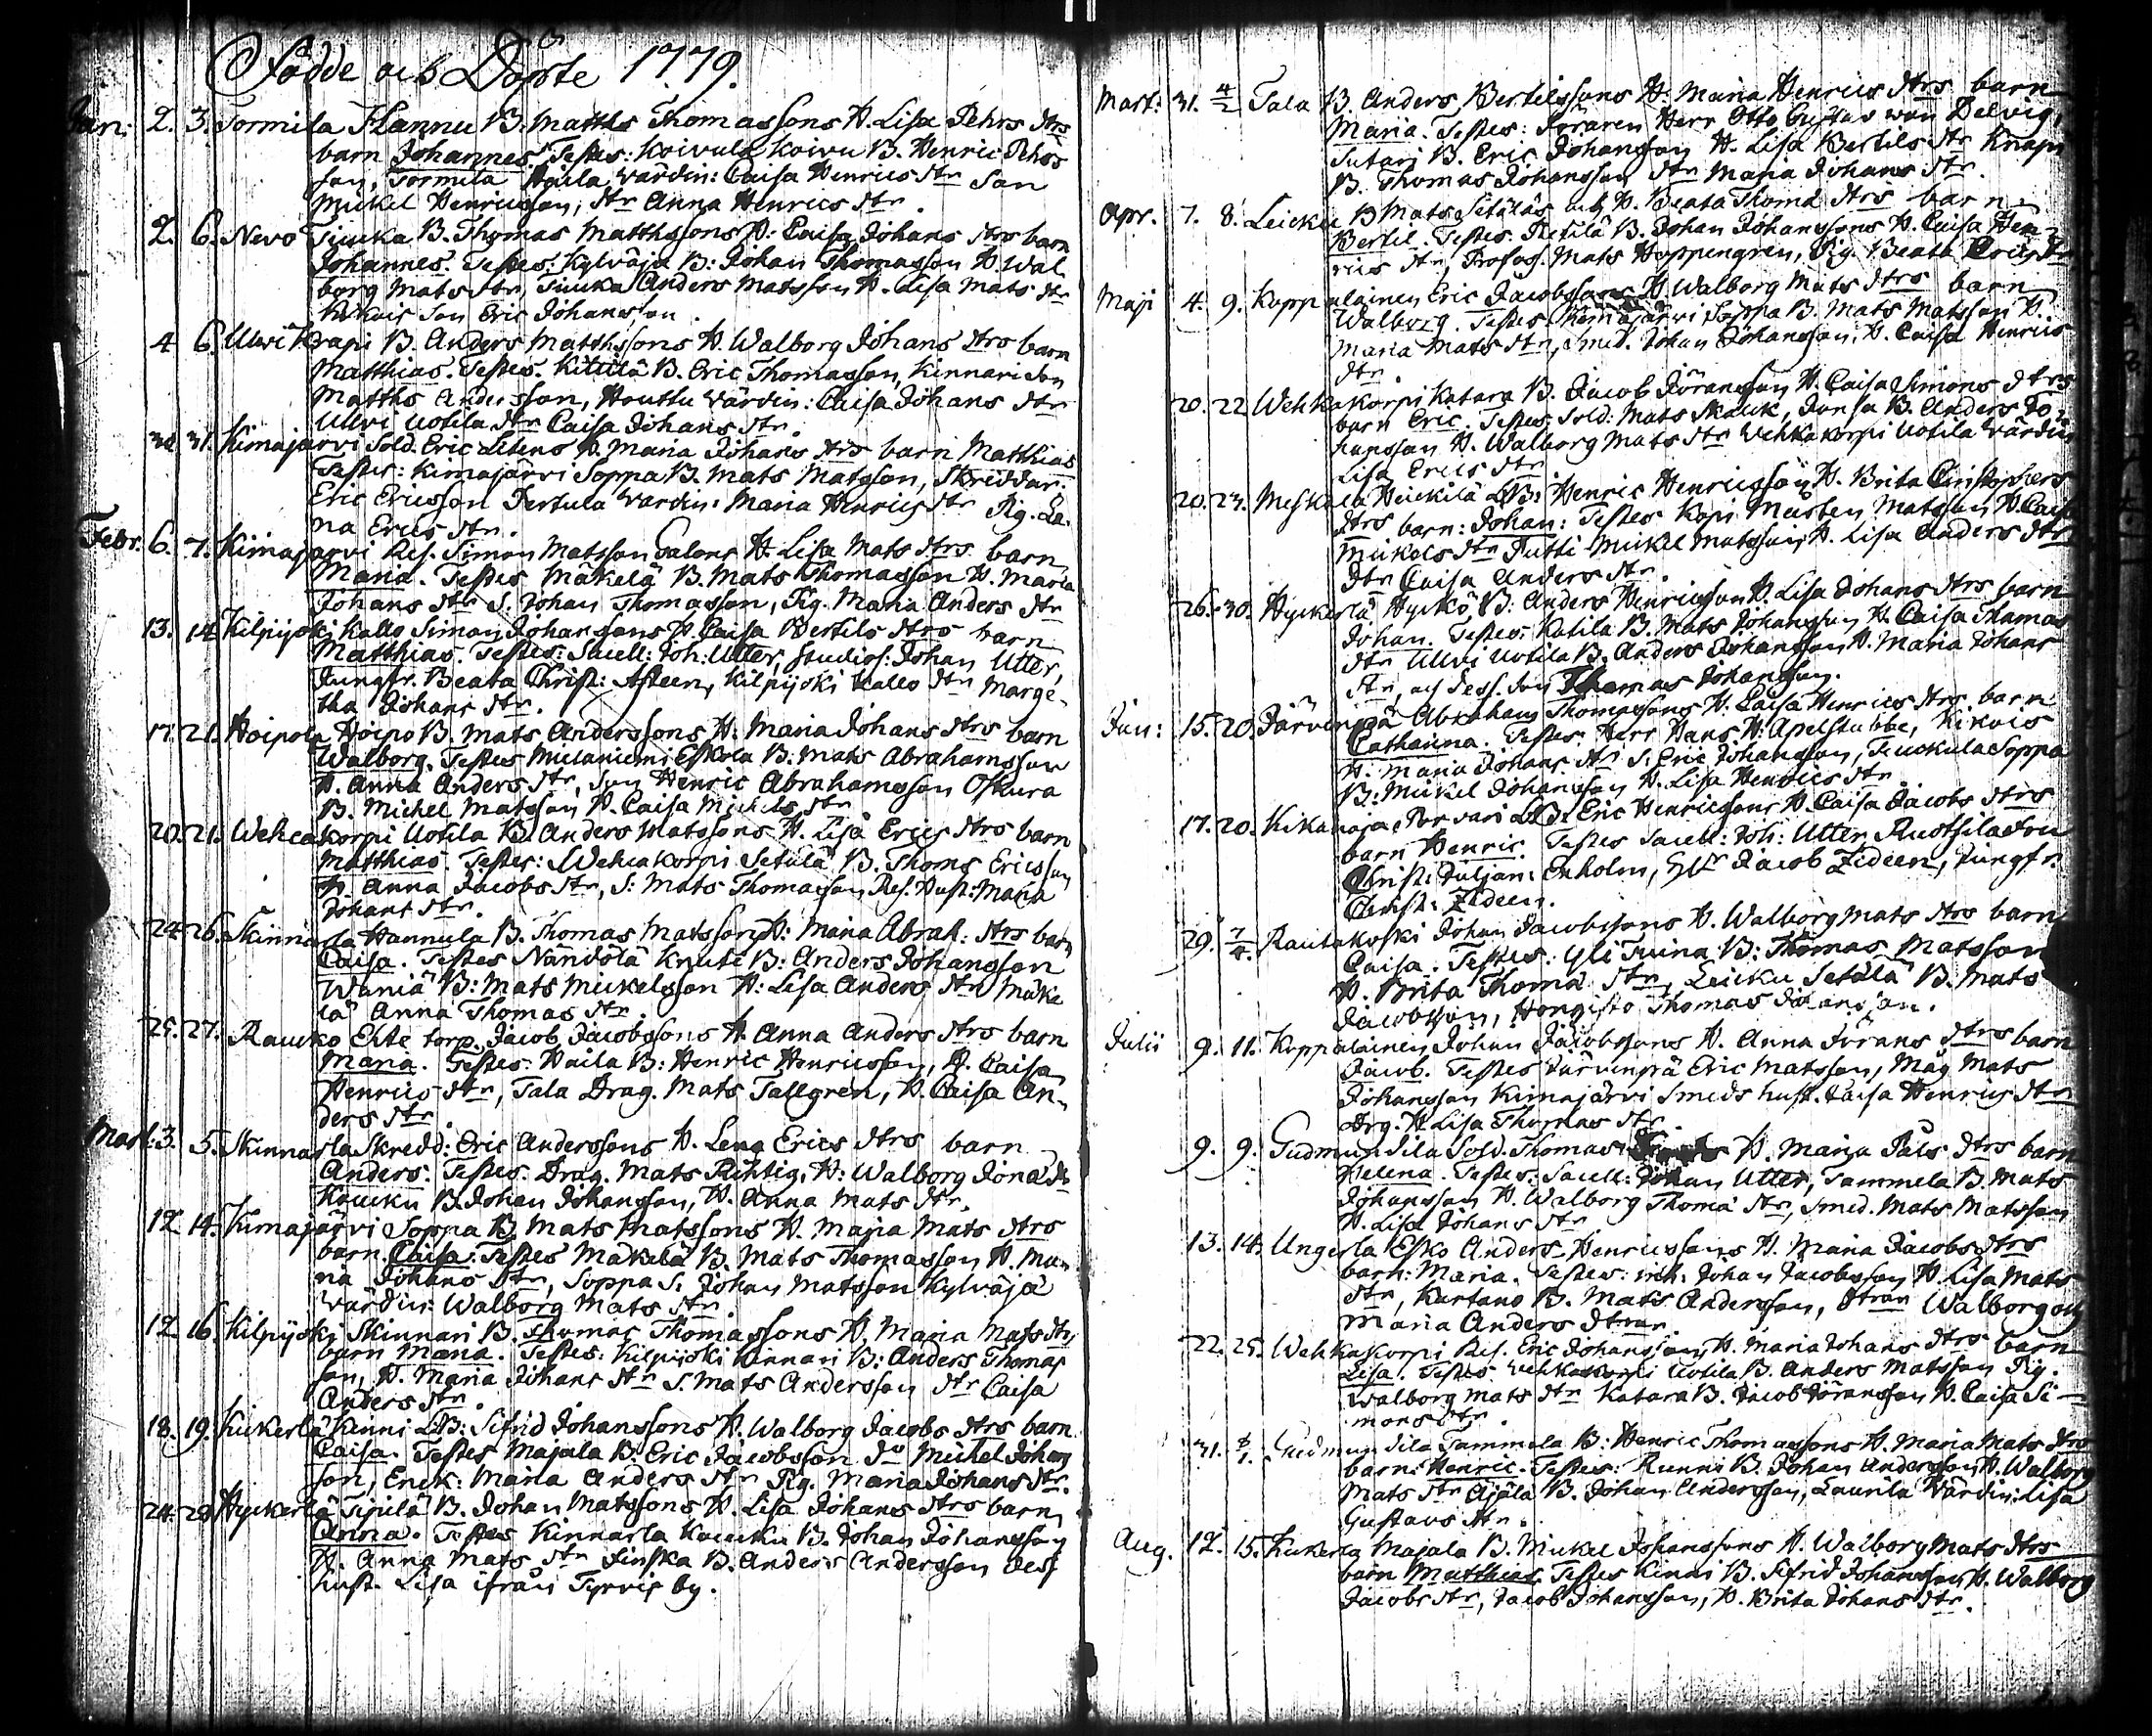 Födde och Döpte 1779.
Jan: 2. 3. Tormila Hannu B: Matths Thomassons H. Lisa Pehrs dtrs
barn Johannes. Testes: Koivula Koivu B. Henric Pehrs
son, Tormila Heula värdin: Caisa Henrics dtr Son
Mickel Henricsson, dtr Anna Henrics dtr.
2. 6. Nevo Tiuuka B. Thomas Matthssons H: Caisa Johans dtrs barn
Johannes. Testes: Kylväjä B: Johan Thomasson H. Wal
borg Mats dtr, Tiuuka Anders Matsson H. Lisa Mats dtr
Kikois Son Eric Johansson.
4 6. Ullvi Krapi B. Anders Matthssons H. Walborg Johans dtrs barn
Matthias. Testes. Kittilä B. Eric Thomasson, Kinnari Son
Matths Andersson, Houttu värdin: Caisa Johans dtr
Ullvi Uotila dtr Caisa Johans dtr.
30. 31. Kimajärvi Sold. Eric Litens H. Maria Johans dtrs barn Matthias
Testes: Kimajärvi Soppa B. Mats Matsson, Skriddar.
Eric Ericsson Pertula värdin: Maria Henrics dtr Pig. Le-
na Erics dtr.
Febr. 6. 7. Kimajärvi Res. Simon Matsson Galons H. Lisa Mats dtrs barn
Maria. Testes Mäkelä B. Mats Thomasson H. Maria
Johans dtr S. Johan Thomasson, Pig. Maria Anders dtr
13. 14 Kilpijoki Kallo Simon Johanssons H. Caisa Bertils dtrs barn
Matthias. Testes: Sacell: Joh: Utter, Studios: Johan Utter,
Jungfr. Beata Christ: Asteen, Kilpijoki Kallo dtr Marge-
tha Johans dtr.
17. 21. Hoipola Hoipo B. Mats Anderssons H. Maria Johans dtrs barn
Walborg. Testes Mielaniemi Eskola B. Mats Abrahamsson
H. Anna Anders dtr, Son Henric Abrahamsson Oskura
B. Michel Matsson H. Caisa Mickels dtr
20. 21. Wehcakorpi Uotila B. Anders Matssons H. Lisa Erics dtrs barn
Matthias. Testes: Wehcakorpi Setälä B. Thoms Ericsson
H. Anna Jacobs dtr, S: Mats Thomasson, Res. Hust: Maria
Johans dtr.
24. 26. Skinnarla Hannula B. Thomas Matssons H: Maria Abrah: dtrs barn
Caisa. Testes Nändölä Knuti B: Anders Johansson
Waniä B: Mats Mickelsson H: Lisa Anders dtr Mäke
lä Anna Thomas dtr.
25. 27. Raucko Ehte torp. Jacob Jacobssons H. Anna Anders dtrs barn
Maria. Testes: Haila B: Henric Henricsson, H. Caisa
Henrics dtr, Tala Drag. Mats Tallgren, H. Caisa An-
ders dtr.
Mart: 3. 5. Skinnarla Skredd: Eric Anderssons H. Lena Erics dtrs barn
Anders. Testes. Drag. Mats Richtig, H: Walborg Jona dtr
Kaucku B. Johan Johansson, H. Anna Mats dtr.
12 14. Kimajärvi Soppa B. Mats Matssons H. Maria Mats dtrs
barn Caisa. Testes Mäkelä B. Mats Thomasson H. Ma-
ria Johans dtr, Soppa S. Johan Matsson Kylväjä
värdin: Walborg Mats dtr.
12 16. Kilpijoki Skinnari B. Thomas Thomassons H. Maria Mats dtrs
barn Maria. Testes: Kilpijoki Kinnari B: Anders Thomas
son, H. Maria Johans dtr S. Mats Andersson dtr Caisa
Anders dtr.
18. 19. Kukerla Kinni LB: Sifrid Johanssons H. Walborg Jacobs dtrs barn
Caisa. Testes Majala B. Eric Jacobsson Do Michel Johans
son, Enck: Maria Anders dtr Pig. Maria Johans dtr.
24. 28 Hyckerlä Tipilä B. Johan Matssons H. Lisa Johans dtrs barn
Anna. Testes Kinnarla Kaucku B. Johan Johansson
H. Anna Mats dtr Finska B. Anders Andersson dess
hust. Lisa ifrån Tyrvis by.
Mart: 31. 4/2 Tala B. Anders Bertilssons H. Maria Henrics dtrs barn
Maria. Testes: Föraren Herr Otto Gustav von Delvig,
Sutari B. Eric Johansson H. Lisa Bertils dtr Knapi
B. Thomas Johansson dtr Maria Johans dtr.
Apr. 7. 8. Leicku B Mats Setäläs och H. Beata Thoma dtrs barn
Bertil. Testes. Pietilä B. Johan Johanssons H. Caisa Hen-
rics dtr, Profos. Mats Hoppengren, Pig. Beata Erics dtr
Maji 4. 9. Koppalainen Eric Jacobssons H. Walborg Mats dtrs barn
Walborg. Testes Kimajärvi Soppa B. Mats Matsson H.
Maria Mats dtr, Smed. Johan Johansson, H. Caisa Henrics
dtr.
20. 22 Wehkakorpi Katara B. Jacob Jöransson H. Caisa Simons dtrs
barn Eric. Testes Sold: Mats Skauk, Junsa B. Anders Jo-
hansson H. Walborg Mats dtr Wehkakorpi Uotila värdin
Lisa Erics dtr
20. 23. Meskala Heickilä LB: Henric Henricsson H. Brita Christophers
dtrs barn: Johan: Testes Kopi Mårten Matsson H. Caisa
Mickels dtr Putti Mickel Matsson, H. Lisa Anders dtr
dtr Caisa Anders dtr.
26. 30. Hyckerlä Hyckö B: Anders Henricsson H. Lisa Johans dtrs barn
Johan. Testes: Katila B. Mats Johansson H. Caisa Thomas
dtr Ullvi Uotila B. Anders Johansson H. Maria Johans
dtr, och dess. Son Thomas Johansson.
Jun: 15. 20. Järvenpä Abraham Thomassons H. Caisa Henrics dtrs barn
Catharina. Testes: Herr Hans H: Apelstubbe, Kikois
H. Maria Johans dtr S. Eric Johansson, Tiuokula Soppa
B: Mickel Johansson H. Lisa Henrics dtr
17. 20. Kikanoja Porvari LB: Eric Henricssons H. Caisa Jacobs dtrs
barn Henric. Testes Sacell: Joh: Utter Ruotsila Fru
Christ: Juljan: Enholm, Hr Jacob Zideen, Jungfr.
Christ: Zideen.
29. 7/4. Rautakoski Johan Jacobssons H. Walborg Mats dtrs barn
Caisa. Testes: Yli Tuina B: Thomas Matsson
H. Brita Thoma dtr, Leicku Setälä B. Mats
Jacobsson, Hongisto Thomas Johansson.
Julii 9. 11. Koppalainen Johan Jacobssons H. Anna Jörans dtrs barn
Jacob. Testes Järvenpä Eric Matsson, Måg Mats
Johansson Kimajärvi Smeds hust. Caisa Henrics dtr
Drg. H. Lisa Thomas dtr.
9. 9. Gudmundila Sold. Thomas H. Maria Påls dtrs barn
Helena. Testes: Sacell: Johan Utter, Tammela B. Mats
Johansson H. Walborg Thoma dtr, Smed. Mats Matsson
H. Lisa Johans dtr
13. 14. Ungerla Esko Anders Henricssons H. Maria Jacobs dtrs
barn: Maria. Testes: inh: Johan Jacobsson H. Lisa Mats
dtr, Kartano B. Mats Andersson, dtran Walborg och
Maria Anders dtran.
22. 25. Wehkakorpi Res. Eric Johansson, H. Maria Johans dtrs barn
Lisa. Testes Wehkakorpi Uotila B. Anders Matsson Pig.
Walborg Mats dtr Katara B. Jacob Jöransson H. Caisa Si-
mons dtr.
31. Gudmundila Tammela B: Henric Thomassons H. Maria Mats dtrs
barn: Henric. Testes: Runni B. Johan Andersson H. Walborg
Mats dtr Ajälä B. Johan Andersson, Laurila Värdin: Lisa
Gustavs dtr.
Aug. 12. 15. Kukerla Majala B. Mickel Johanssons H. Walborg Mats dtrs
barn Matthias Testes Kinni B. Sifrid Johansson, H. Walborg
Jacobs dtr, Jacob Johansson, H. Brita Johans dtr.